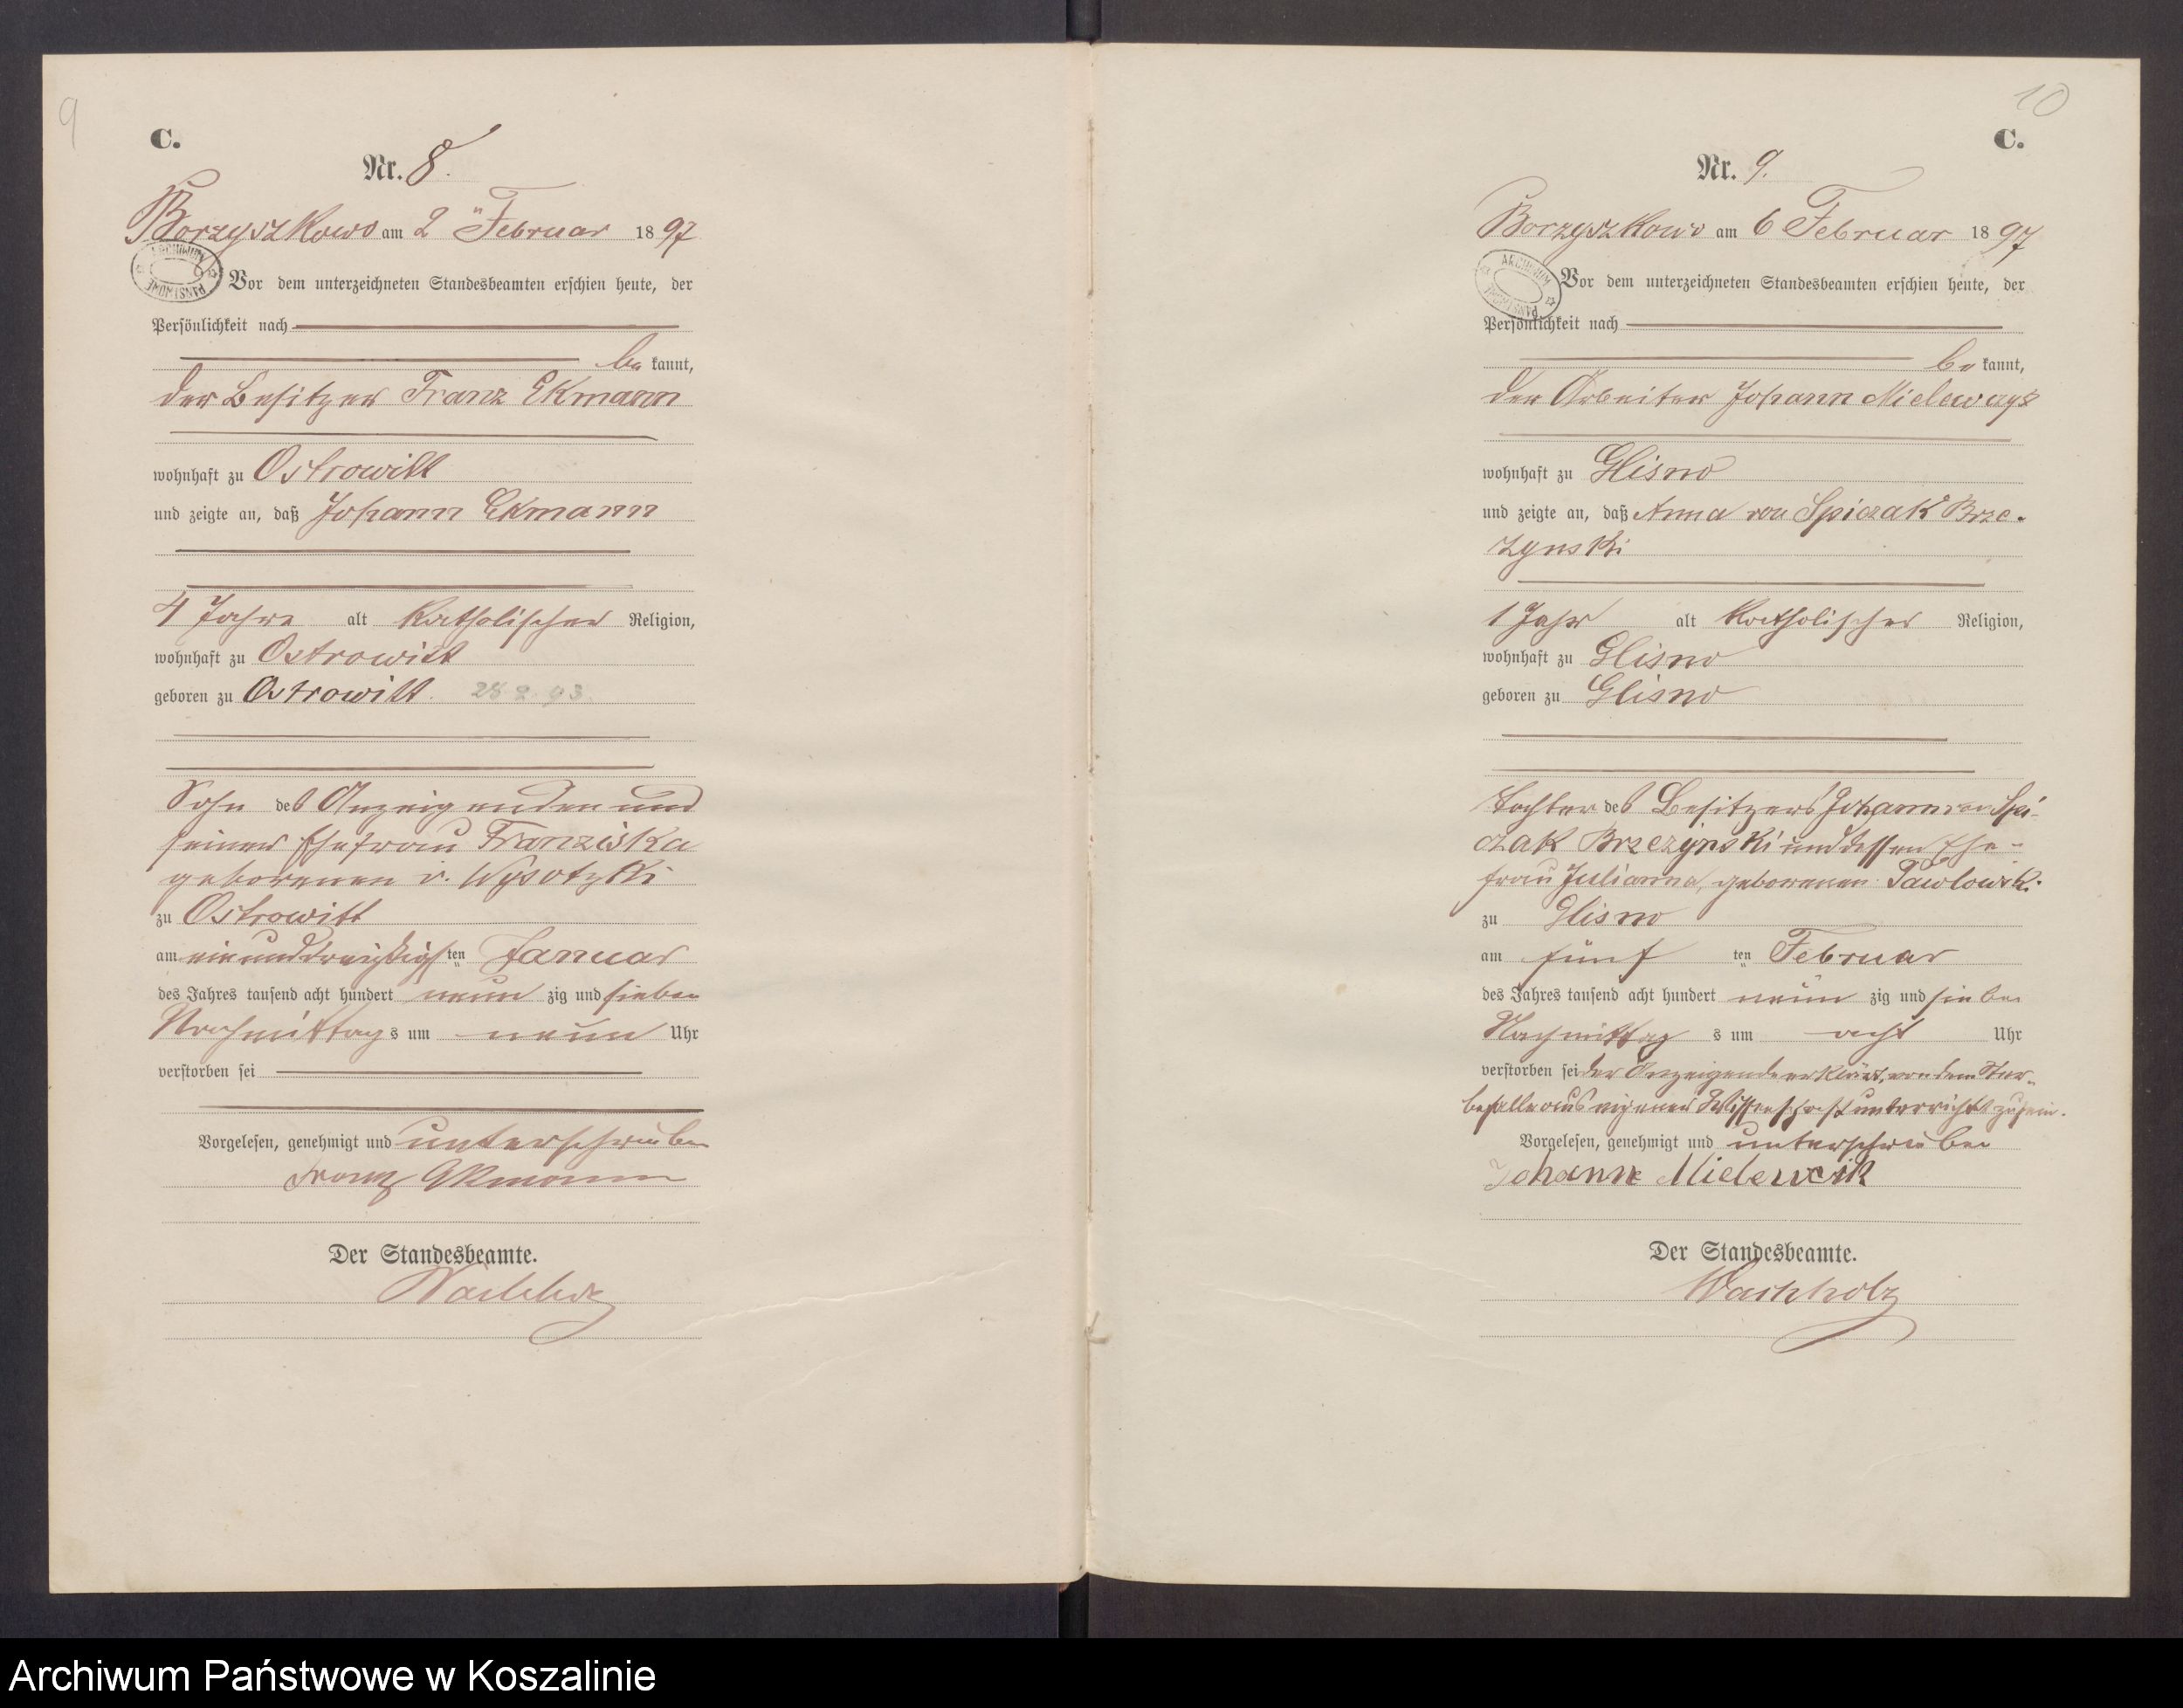 9
C.
Nr. 8.
Borzyszkowo am 2 ten Februar 1897
ARCHIWUM PAŃSTWOWE
Vor dem unterzeichneten Standesbeamten erschien heute, der
Persönlichkeit nach
be kannt,
der Besitzer Franz Ekmann
wohnhaft zu Ostrowitt
und zeigte an, daß Johann Ekmann
4 Jahre alt katholischer Religion,
wohnhaft zu Ostrowitt
geboren zu Ostrowitt. 28 2 93
Sohn des Anzeigenden und
seiner Ehefrau Franziska
geborenen v. Wysotzki
zu Ostrowitt
am einunddreißigsten Januar
des Jahres tausend acht hundert neun zig und sieben
Nachmittags um neun Uhr
verstorben sei
Vorgelesen, genehmigt und unterschrieben
Franz Ekmann
Der Standesbeamte.
Wachholz
10
C.
Nr. 9.
Borzyszkowo am 6 Februar 1897
ARCHIWUM PAŃSTWOWE
Vor dem unterzeichneten Standesbeamten erschien heute, der
Persönlichkeit nach
be kannt,
der Arbeiter Johann
wohnhaft zu Glisno
und zeigte an, daß Anna von Spiczak Brze-
zynski
1 Jahr alt katholischer Religion,
wohnhaft zu Glisno
geboren zu Glisno
Tochter des Besitzers Johann von Spi-
czak Brzezynski und dessen Ehe-
frau Julianna, geborenen Pawlowski
zu Glisno
am fünf ten Februar
des Jahres tausend acht hundert neun zig und sieben
Nachmittag s um acht Uhr
verstorben sei der Anzeigende erklärt, von dem Ster-
befalle aus eigener Wissenschaft unterrichtet zu sein.
Vorgelesen, genehmigt und unterschrieben
Johann Mielewcik
Der Standesbeamte.
Wachholz
Archiwum Państwowe w Koszalinie